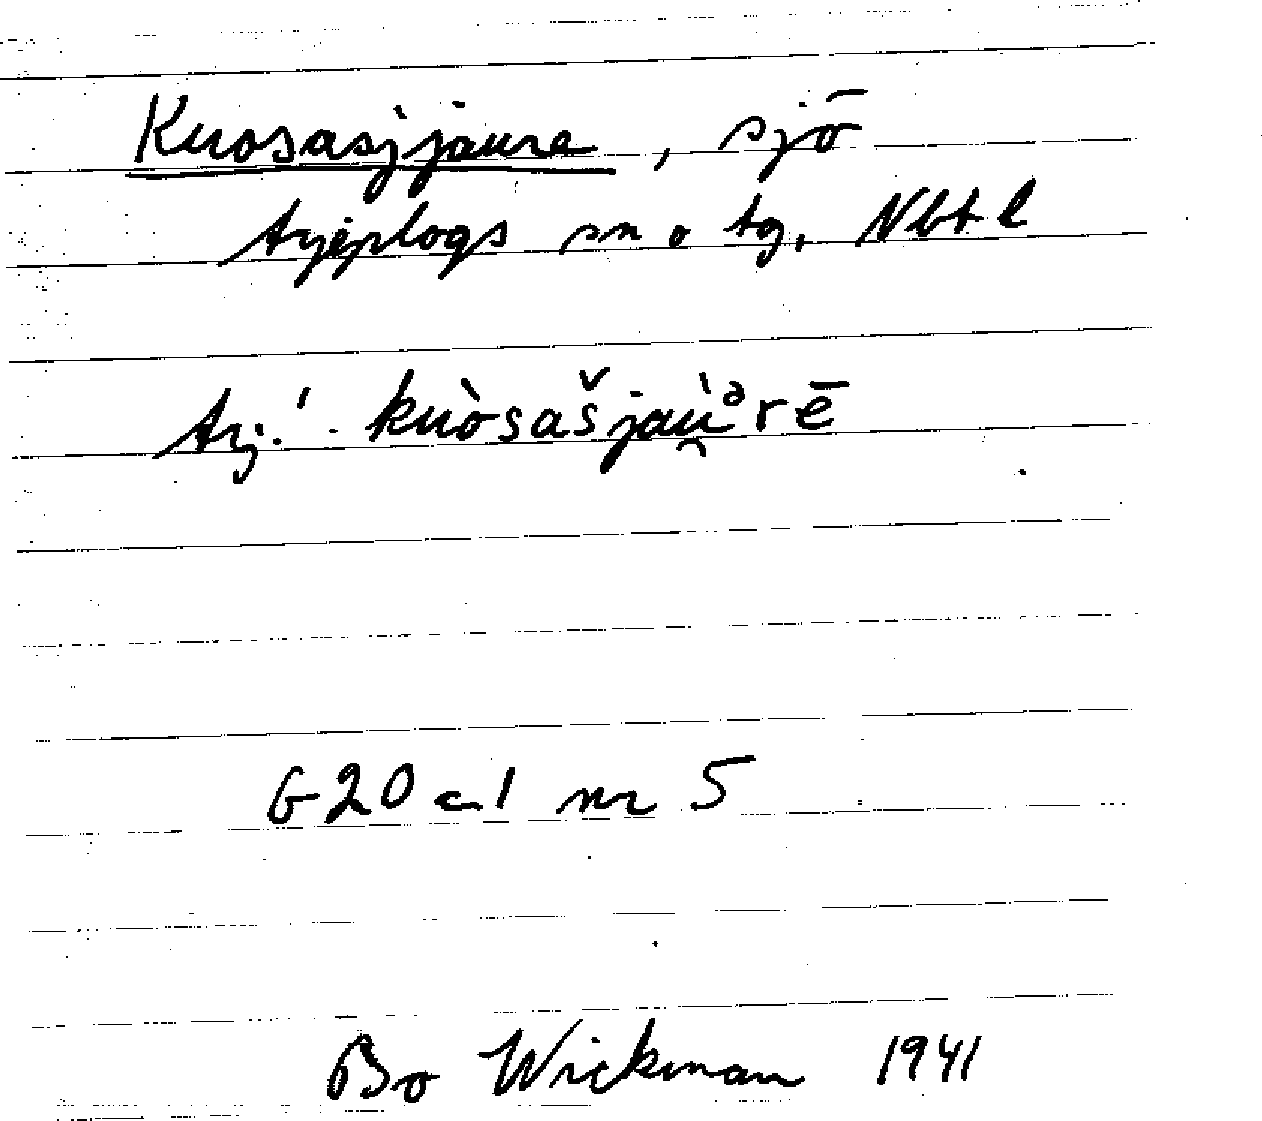 Kuosasjjaure, sjö
Arjeplogs sn o tg, Nbtl
Arj.! kuòsašjaù̯ᵊrē
G20c1 nr 5
Bo Wickman 1941